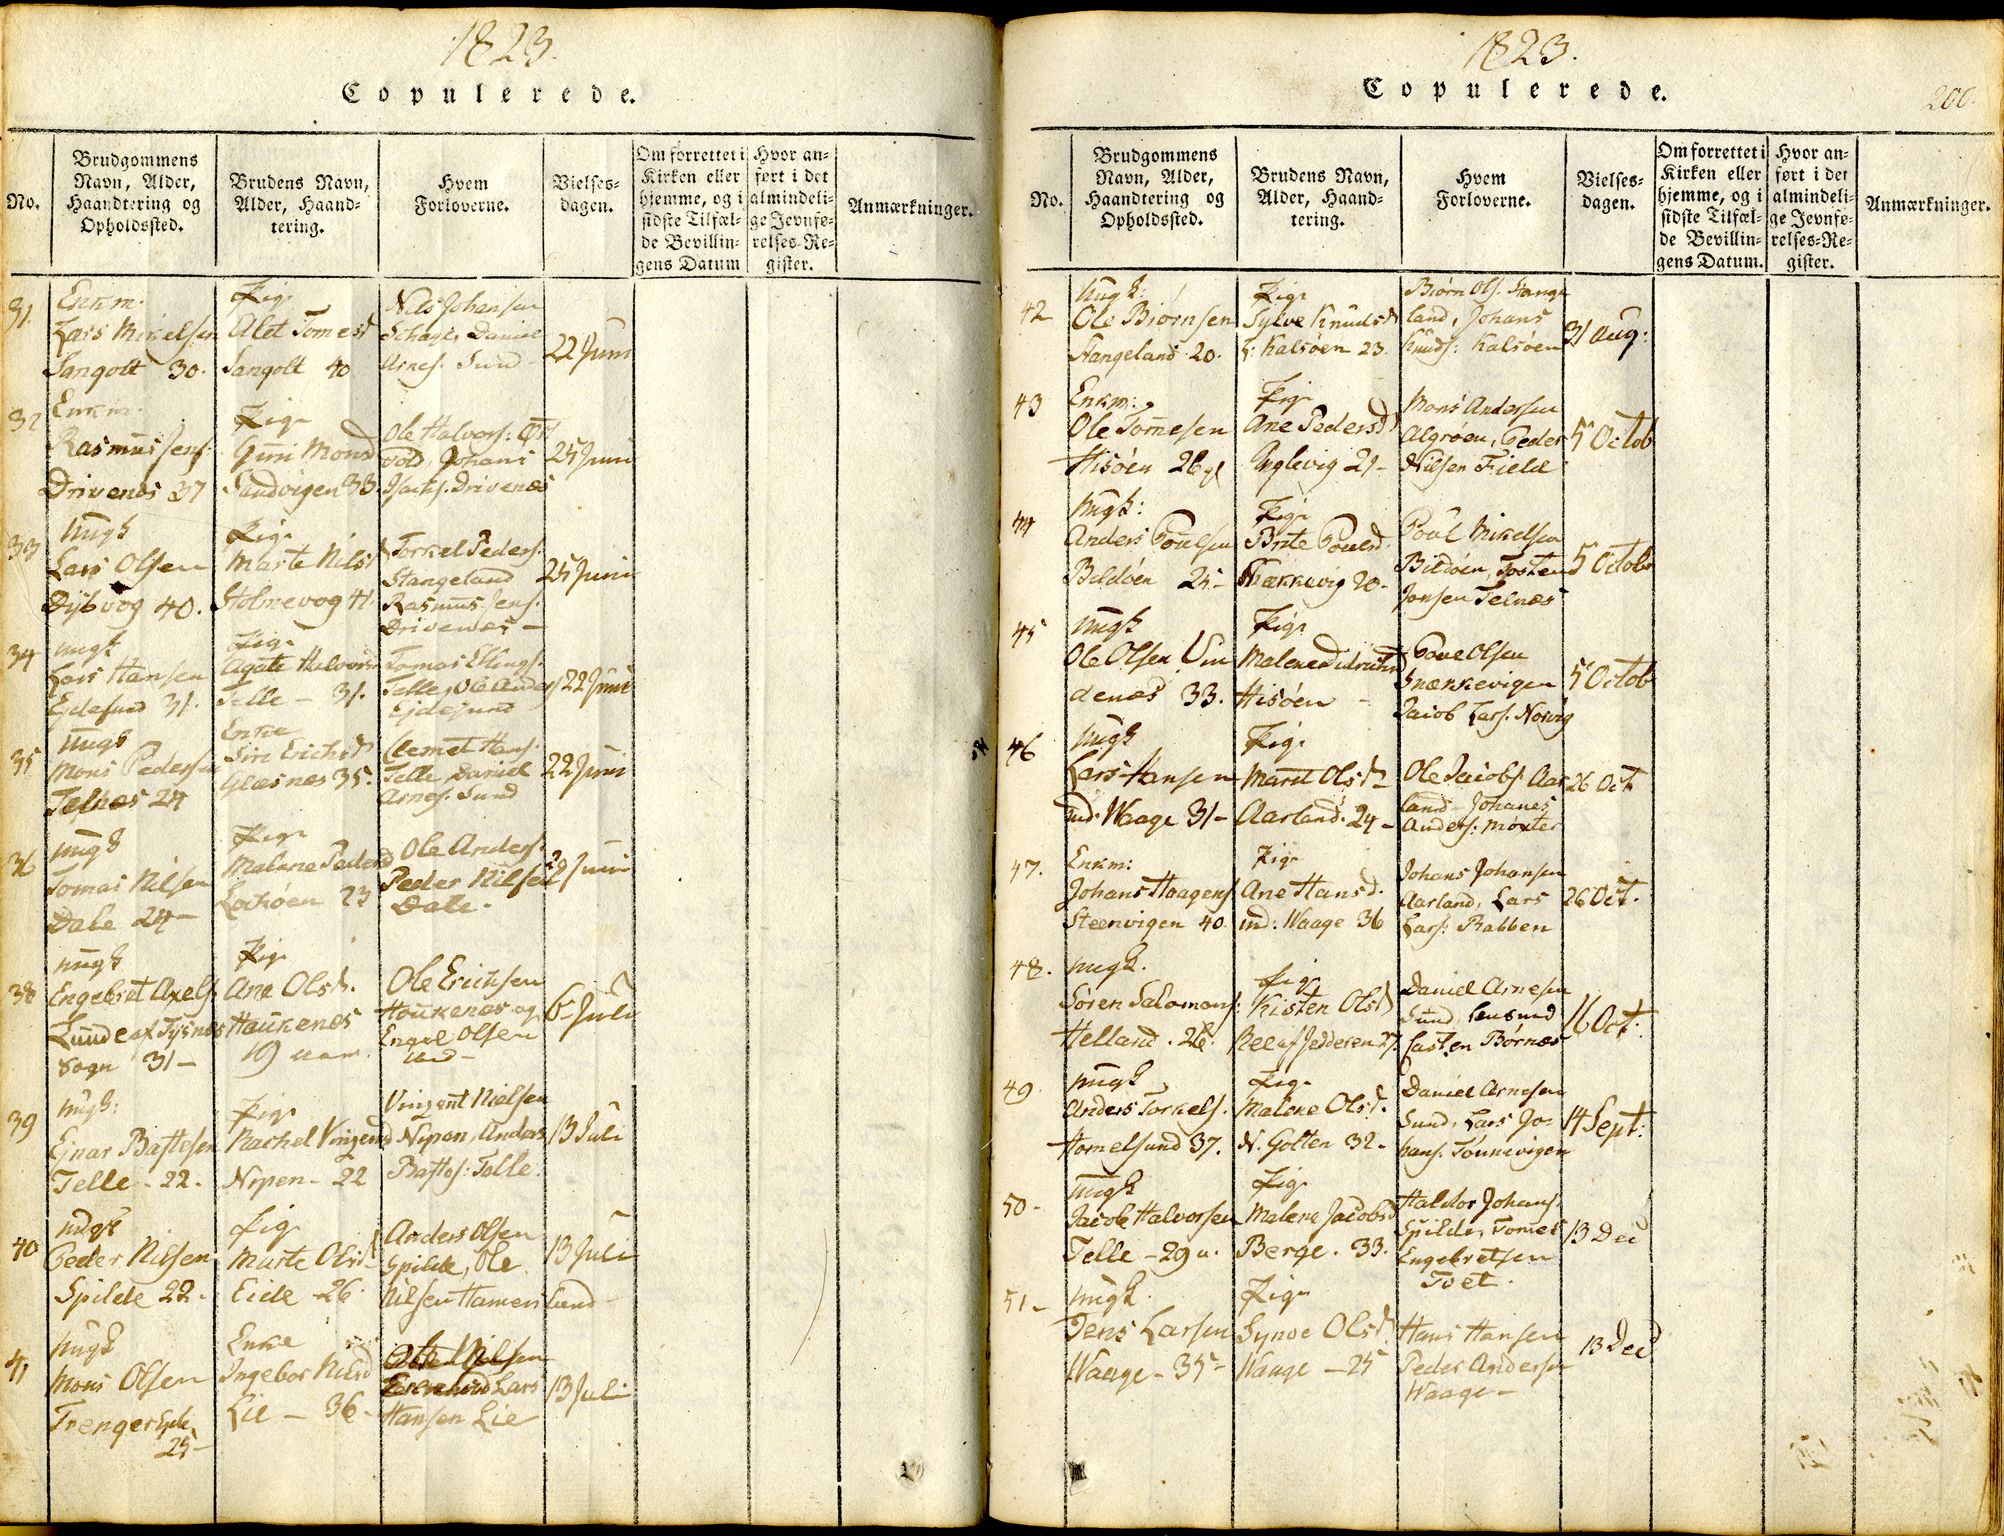 1823.
Copulerede.
No.
Brudgommens
Navn, Alder,
Haandtering og
Opholdssted.
Brudens Navn,
Alder, Haand-
tering.
Hvem
Forloverne.
Vielses-
dagen.
Om forrettet i
Kirken eller
hjemme, og i
sidste Tilfæl-
de Bevillin-
gens Datum
Hvor an-
ført i det
almindeli-
ge Jevnfø-
relses-Re-
gister.
Anmærkninger.
31.
Enkm.
Lars Mikelsen
Sangolt 30.
Pige
Alet Tomesd
Sangolt 40
Nils Johansen
Schage, Daniel
Arnes. Sund
22 Juni
32
Enkm.
Rasmus Jens.
Drivenes 37
Pige
Guri Monsd
Sandvigen 33.
Ole Halvors:
vold, Johans
Isaks. Drivenæs
25 Juni
33
ungk
Lars Olsen
Dybvog 40.
Pige
Marte Nilsd
Holmevog 41.
Torkel Peders.
Stangeland
Rasmus Jens.
Drivenæs –
25 Juni
34
ungk
Lars Hansen
Ejdesund 31.
Pige
Agate Halvorsd
Telle – 31.
Tomas Ellings.
Telle, Ole Anders
Ejdesund
22 Juni
35
ungk
Mons Pedersen
Telnes 24
Enke
Siri Erichsd
Glæsnæs 35.
Clemet Hans.
Telle Daniel
Arnes. Sund
22 Juni
36
ungk
Tomas Nilsen
Dale 24 –
Pige
Malene Pedersd
Lochøen 23
Ole Anders.
Peder Nilsen
Dale.
29 Juni
38
ungk
Engebret Axels.
Lunde af Tysnes
Sogn 31 –
Pige
Ane Olsd.
Haukenæs
19 aar.
Ole Erichsen
Haukenæs og
Engel Olsen
6 Juli
39
ungk:
Ejnar Bastesen
Telle – 22.
Pige
Rachel Vinzensd
Nipen – 22
Vinzent Nielsen
Nipen, Anders
Bastes: Telle.
13 Juli
40
ungk
Peder Nilsen
Spilde 22.
Pige
Marte Olsd
Eide 26.
Anders Olsen
Spilde, Ole
Nilsen Hamersland
13 Juli
41
ungk
Mons Olsen
Trengereide
25 –
Enke
Ingebor Nilsd
Lie – 36.
Lars
Hansen Lie
13 Juli
1823.
Copulerede.
200.
No.
Brudgommens
Navn, Alder,
Haandtering og
Opholdssted.
Brudens Navn,
Alder, Haand-
tering.
Hvem
Forloverne.
Vielses-
dagen.
Om forrettet i
Kirken eller
hjemme, og i
sidste Tilfæl-
de Bevillin-
gens Datum.
Hvor an-
ført i det
almindeli-
ge Jevnfø-
relses-Re-
gister.
Anmærkninger.
42
ungk:
Ole Biørnsen
Stangeland 20.
Pige
Sylve Knudsd
L: Kalsøen 23.
Biørn Ols. Stange
land, Johans
Knuds: Kalsøen
31 Aug:
43
Enkm:
Ole Tomesen
Hisøen 26
Pige
Ane Pedersd
Anglevig 21 –
Mons Andersen
Algrøen, Peder
Nilsen Field
5 Octob
44
ungk:
Anders Poulsen
Bildøen 25 –
Pige
Brite Poulsd
Skækkevig 20 –
Poul Mikelsen
Bildøen, Tosten
Jonsen Telnæs
5 Octob
45
ungk
Ole Olsen Vin
denæs 33.
Pige
Malene
Hisøen –
Pove Olsen
Snækkevigen
Jaiob Lars. Norvig
5 Octob
46
ungk
Lars Hansen
ind. Waage 31 –
Pige
Marit Olsd –
Aarland. 24 –
Ole Jaiobs. Aar
land – Johanes
Anders: Møxter
26 Oct
47.
Enkm:
Johans Haagens
Steenvigen 40.
Pige
Ane Hansd.
ind: Waage 36
Johans Johansen
Aarland, Lars
Lars: Rabben
26 Oct.
48.
ungk.
Søren Salomons:
Helland. 26.
Pige
Kisten Olsd
Ree af Jedderen 27.
Daniel Arnesen
Sund,
Casten Børnæs
16 Oct:
49
ungk
Anders Torkels.
Homelsund 37.
Pige
Malene Olsd.
N. Golten 32 –
Daniel Arnesen
Sund, Lars Jo-
hans. Tønnevigen
14 Sept:
50 –
ungk
Jacob Halvorsen
Telle – 29 a.
Pige
Malene Jacobsd
Berge. 33.
Haldor Johans.
Spilde, Tomes
Engebretsen
Toet.
13 Dec
51 –
ungk.
Jens Larsen
Waage – 35 –
Pige
Synve Olsd
Waage – 25
Hans Hansen
Peder Andersen
Waage –
13 Dec